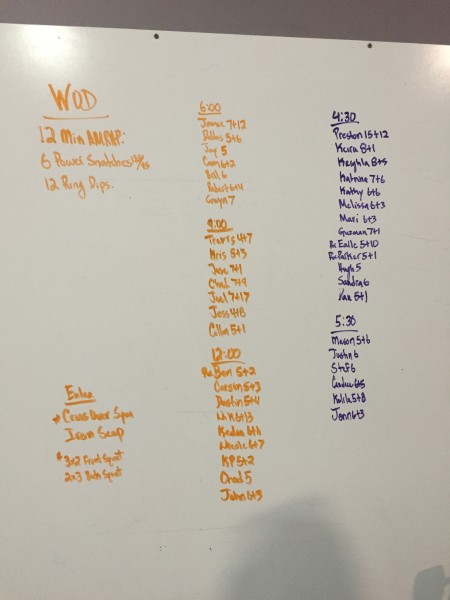 WOD
12 Min AMRAP:
6 Power Snatches
12 Ring Dips.
6:00
7+12
Dallas 5+6
Jay 5
Cam 6+2
Bill 6
Robert 6+4
Gwyn 7
9:00
Travis 4+7
Kris 5+3
Jane 7+1
Chad 7+9
Joel 7+17
Jess 4+8
Collin 5+1
12:00
Rx Ben 5+2
Carson 5+3
Dustin 5+4
Nik 6+13
6+6
Nicole 6+7
KP 5+2
Chad 5
John 6+3
4:30
Preston 15+12
Keira 8+1
Kayhla 8+5
Katrina 7+6
Kathy 6+6
Melissa 6+3
Mari 6+3
Guzman 7+1
Rx 5+10
Rx Parker 5+1
Hugh 5
Sandra 6
Van 5+1
5:30
Mason 5+6
Justin 6
Stef 6
Candice 6+5
Kalila 5+8
Jenn 6+3
Cross Over Sym
Iron Scap
* 3x2 Front Squat
2x3 Back Squat